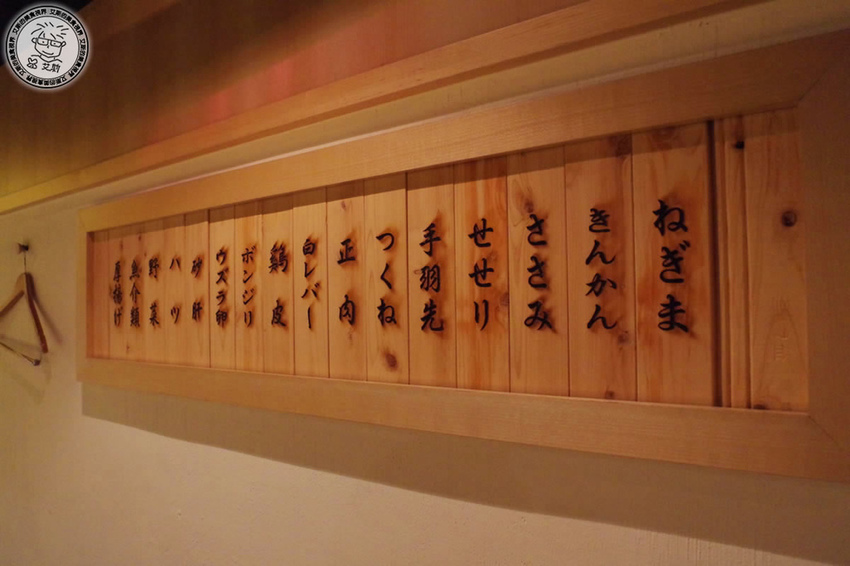 ねぎま
きんかん
ささみ
せせり
手羽先
つくね
正肉
白レバー
鶏皮
ボンジリ
ウズラ卵
砂肝
ハツ
野菜
魚介類
厚揚げ
艾斯的美食視界